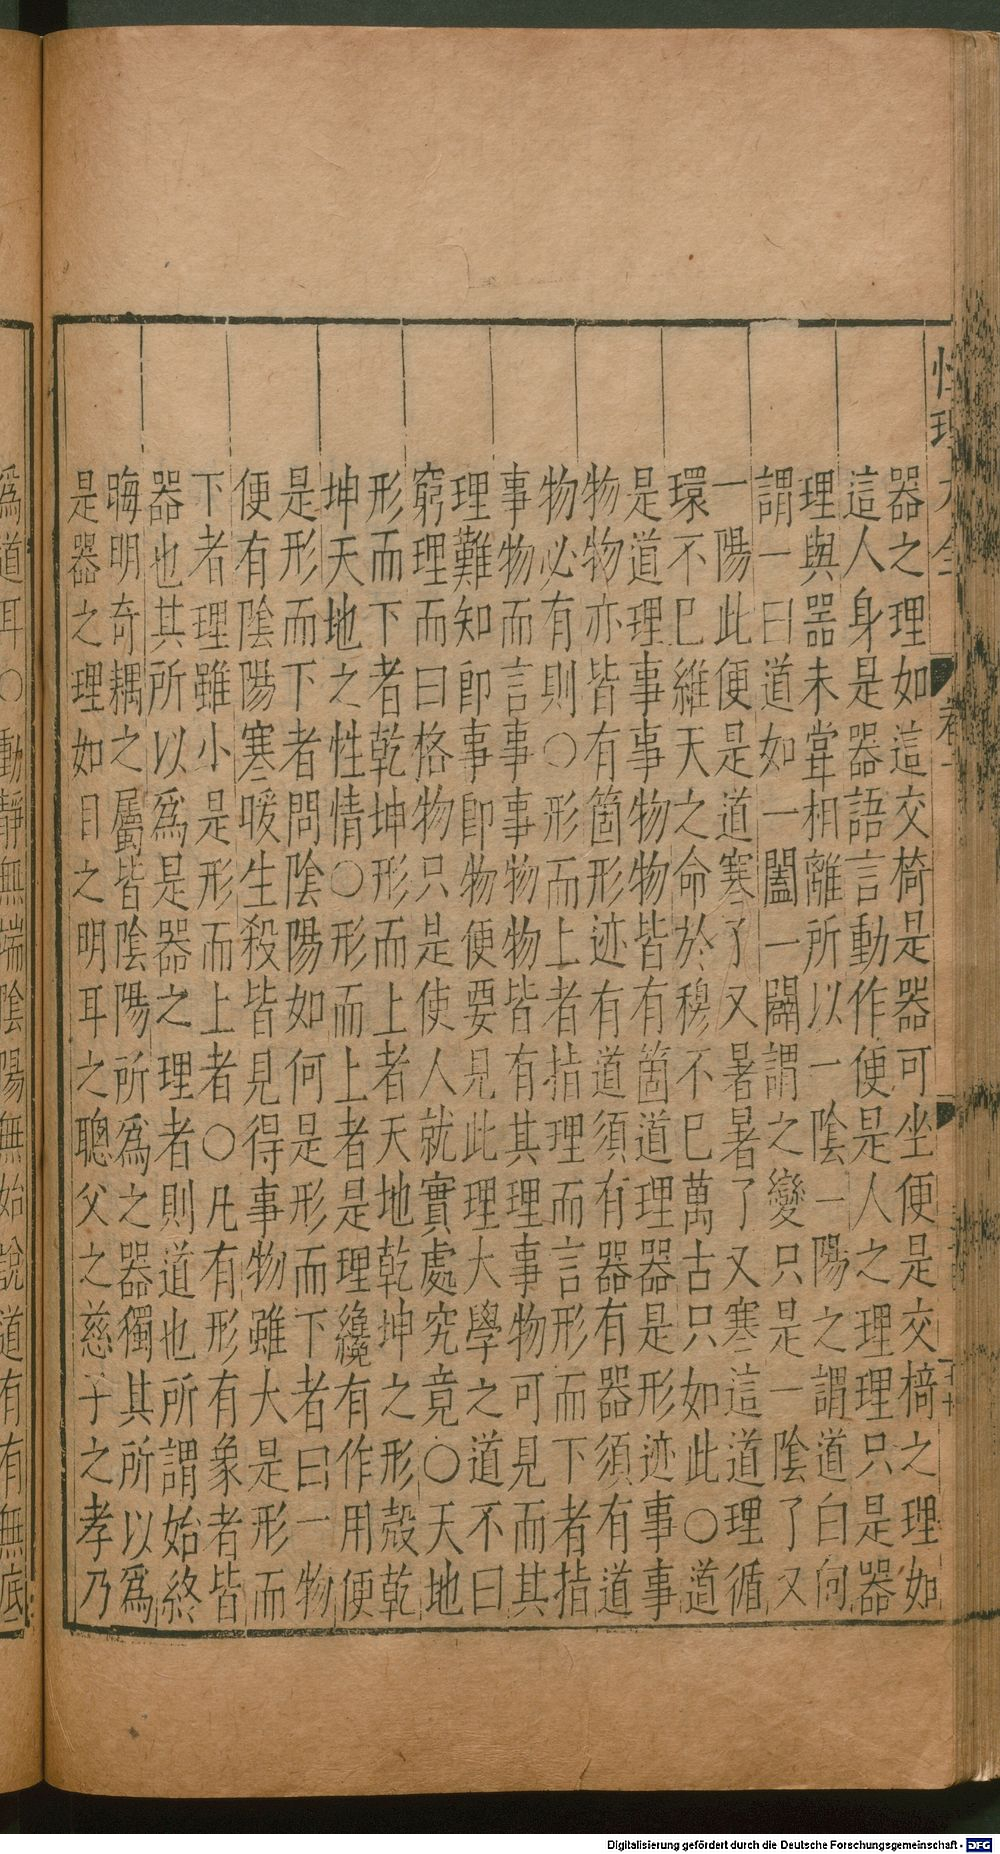 性理大全
器之理如這交椅是器可坐便是交椅之理如
這人身是器語言動作便是人之理理只是器
理與器未甞相離所以一陰一陽之謂道曰向
謂一曰道如一闔一闢謂之變只是一陰了又
一陽此便是道寒了又暑暑了又寒這道理循
環不已維天之命於穆不已萬古只如此○道
是道理事事物物皆有箇道理器是形迹事事
物物亦皆有箇形迹有道須有器有器須有道
物必有則○形而上者指理而言形而下者指
事物而言事事物物皆有其理事物可見而其
理難知卽事卽物便要見此理大學之道不曰
窮理而曰格物只是使人就實處究竟○天地
形而下者乾坤形而上者天地乾坤之形殻乾
坤天地之性情○形而上者是理纔有作用便
是形而下者問陰陽如何是形而下者曰一物
便有陰陽寒暖生殺皆見得事物雖大是形而
下者理雖小是形而上者○凡有形有象者皆
器也其所以爲是器之理者則道也所謂始終
晦明奇耦之屬皆陰陽所爲之器獨其所以爲
是器之理如目之明耳之聰父之慈子之孝乃
爲道耳○動靜無端陰陽無始說道有有無底
Digitalisierung gefördert durch die Deutsche Forschungsgemeinschaft - DFG